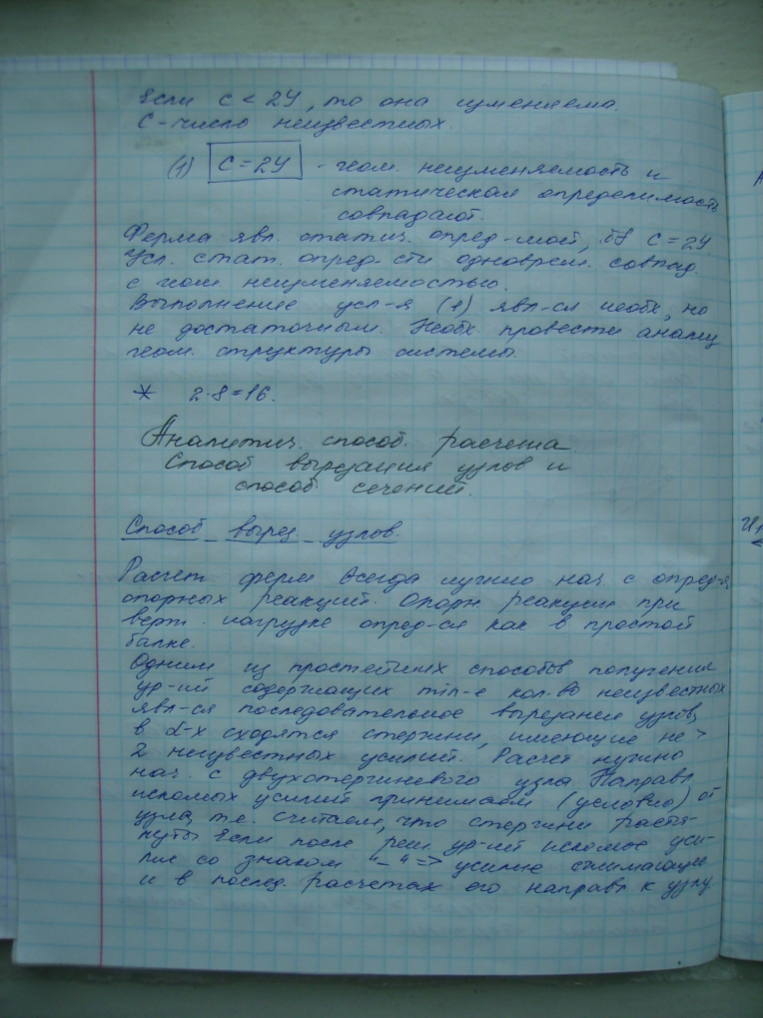 Если С < 2У, то она изменяема.
С - число неизвестных.
(1) С = 2У - геом. неизменяемость и
статическая определимость
совпадают.
Ферма явл. статич. опред-мой, С = 2У
Усл. стат. опред-сти одноврем. совпад.
с геом. неизменяемостью.
Выполнение усл-я (1) явл-ся необх, но
не достаточным. Необх. провести анализ
геом. структуры системы.
* 2·8=16.
Аналитич. способ. расчета.
Способ вырезания узлов и
способ сечений.
Способ вырез. узлов.
Расчет ферм всегда нужно нач. с опред-я
опорных реакций. Опорн реакции при
верт. нагрузке опред-ся как в простой
балке.
Одним из простейших способов получения
ур-ий содержащих min-е кол-во неизвестных
явл-ся последовательное вырезание узлов,
в к-х сходятся стержни, имеющие не >
2 неизвестных усилий. Расчет нужно
нач. с двухстержневого узла. Направл
искомых усилий принимаем (условно) от
узла, т.е. считаем, что стержни растя-
нуты. Если после реш ур-ий искомое уси-
лие со знаком "–" => усилие сжимающее
и в послед. расчетах его направл к узлу.